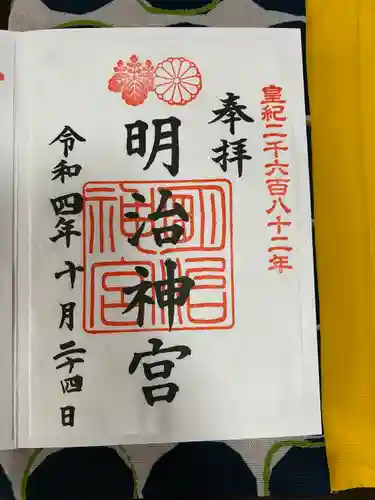 皇紀二千六百八十二年
奉拝
明治神宮
明治神宮
令和四年十月二十四日